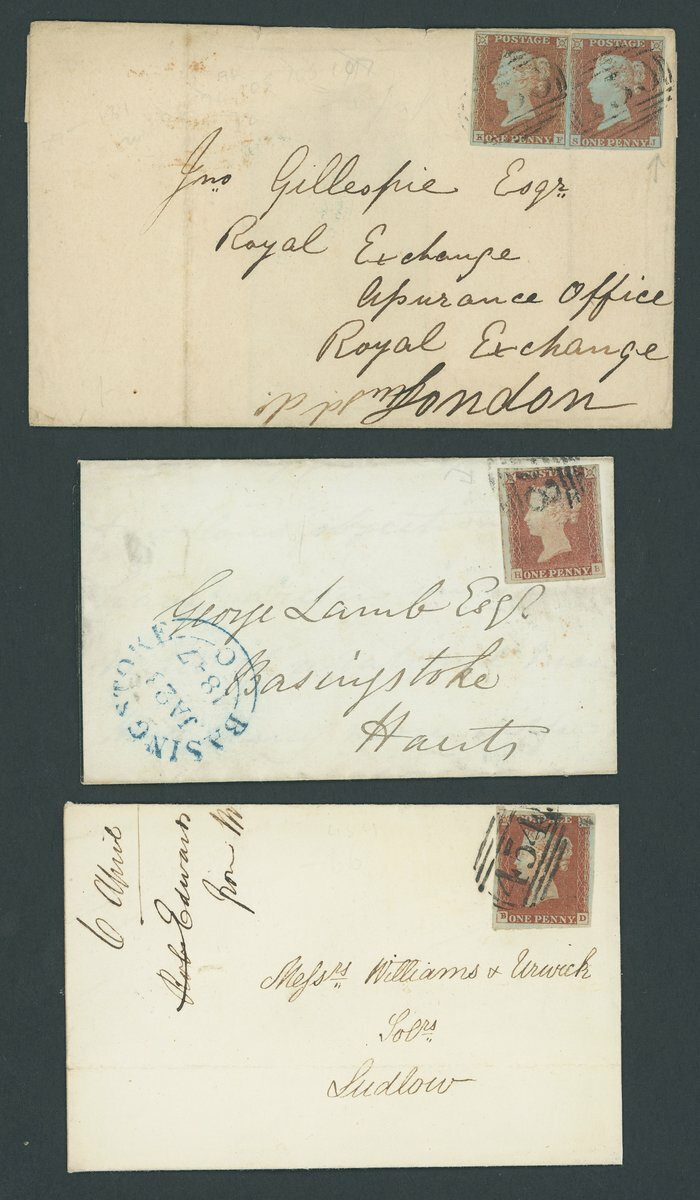 POSTAGE POSTAGE
ONE PENNY S ONE PENNY J
Jno Gillespie Esqr
Royal Exchange
Assurance Office
Royal Exchange
London
POSTAGE
H ONE PENNY B
George Lamb Esqr
Basingstoke
Hants
BASINGSTOKE
JA 23
1847
C
POSTAGE
454
B ONE PENNY D
6 April
Edwards
Messrs Williams & Urwick
Solrs
Ludlow